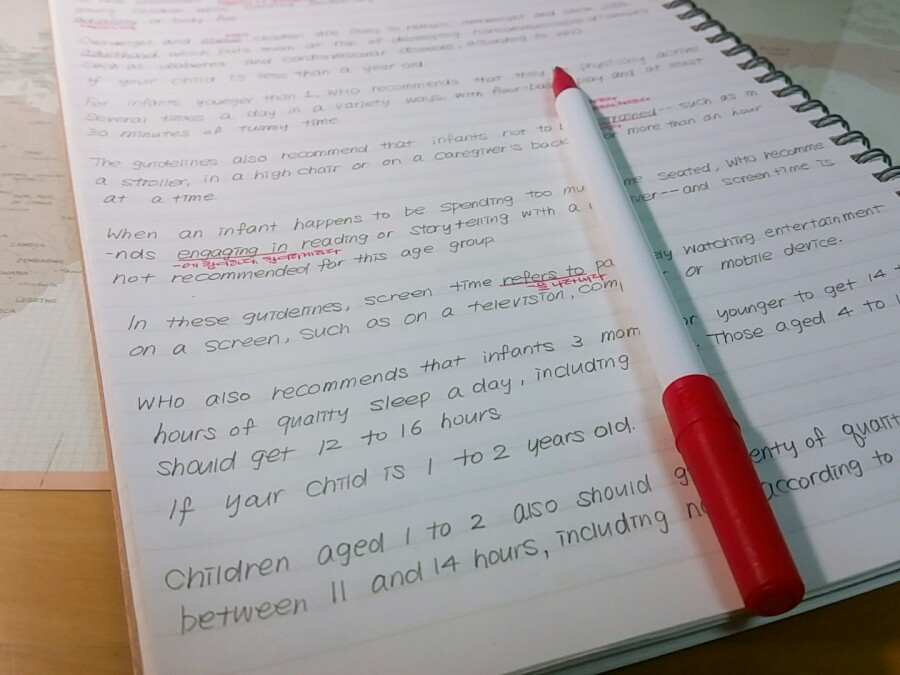 children
Overweight and obese children are likely to remain overweight and
childhood, which puts them at risk of developing noncommunicable
such as diabetes and cardiovascular diseases, according to WHO.
If your child is less than a year old
For infants younger than 1, WHO recommends that they physically active
several times a day in a variety ways with floor-ba play and at least
30 minutes of tummy time.
The guidelines also recommend that infants not to rained-- such as in
a stroller, in a high chair or on a caregiver's back more than an hour
at a time.
When an infant happens to be spending too mu me seated, WHO recomme
-nds engaging in reading or storytelling with a iver-- and screen time is
-에 참여하다,
not recommended for this age group.
In these guidelines, screen time refers to pa ely watching entertainment
-을 나타내다
on a screen, such as on a television, com or mobile device.
WHO also recommends that infants 3 mon or younger to get 14 t
hours of quality sleep a day, including . Those aged 4 to 1
should get 12 to 16 hours.
If your child is 1 to 2 years old.
Children aged 1 to 2 also should g enty of qualit
between 11 and 14 hours, including n according to
LESOTHO